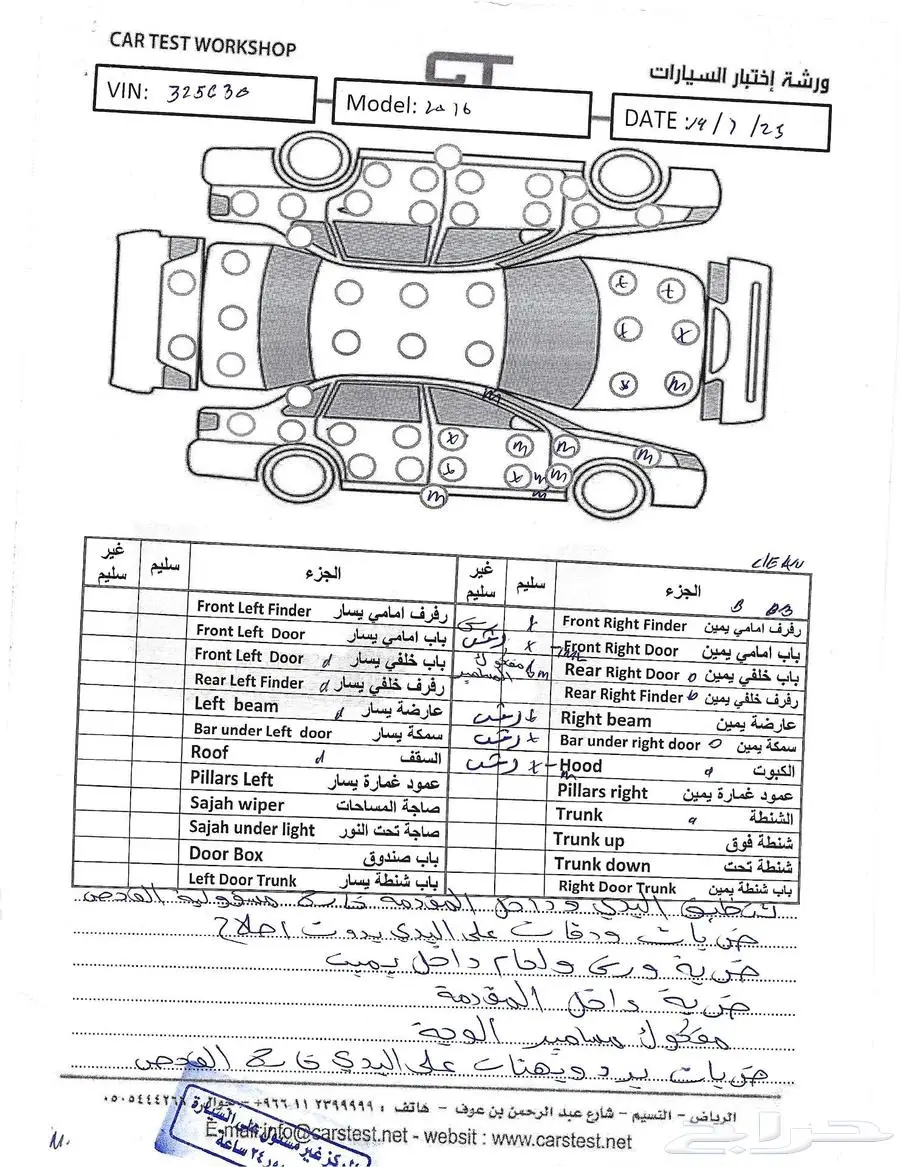 CAR TEST WORKSHOP
ورشة إختبار السيارات
VIN: 325630
Model: 2016
DATE: 19/7/25
CLEAN
الجزء سليم غير سليم الجزء سليم غير سليم
Front Right Finder رفرف امامي يمين x Front Left Finder رفرف امامي يسار
Front Right Door باب امامي يمين x رش Front Left Door باب امامي يسار
Rear Right Door باب خلفي يمين مفكوك المسامير Front Left Door باب خلفي يسار
Rear Right Finder رفرف خلفي يمين Rear Left Finder رفرف خلفي يسار
Right beam عارضة يمين رش Left beam عارضة يسار
Bar under right door سمكة يمين رش Bar under Left door سمكة يسار
Hood الكبوت x رش Roof السقف
Pillars right عمود غمارة يمين Pillars Left عمود غمارة يسار
Trunk الشنطة Sajah wiper صاجة المساحات
Trunk up شنطة فوق Sajah under light صاجة تحت النور
Trunk down شنطة تحت Door Box باب صندوق
Right Door Trunk باب شنطة يمين Left Door Trunk باب شنطة يسار
البدي وداخل المقدمة خارج مسؤولية الفحص
ضربات ودقات على البدي بدون اصلاح
ضربة ورى ولحام داخل يمين
ضربة داخل المقدمة
مفكوك مسامير الوجة
ضربات برد ودهنات على البدي خارج الفحص
الرياض - النسيم - شارع عبد الرحمن بن عوف - هاتف : ٢٣٩٩٩٩٩ ١١ ٩٦٦+ - جوال ٠٥٠٥٤٤٤٢٦٦
E-mail: info@carstest.net - websit : www.carstest.net
المركز غير مسئول على السيارة
٢٤ ساعة
حراج